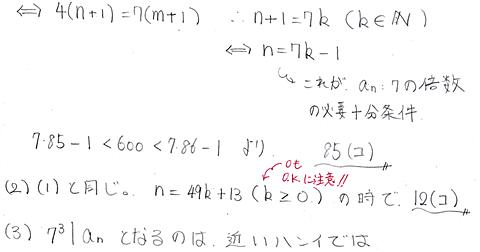 ⇔ 4(n+1)=7(m+1) ∴ n+1=7k (k∈ℕ)
⇔ n=7k-1
これが、an:7の倍数
の必要十分条件.
7・85-1 < 600 < 7・86-1 より 85(コ)
0も
O.K.に注意!!
(2) (1)と同じ。 n=49k+13 (k≧0) の時で、12(コ)
(3) 7³|an となるのは、近いハンイでは